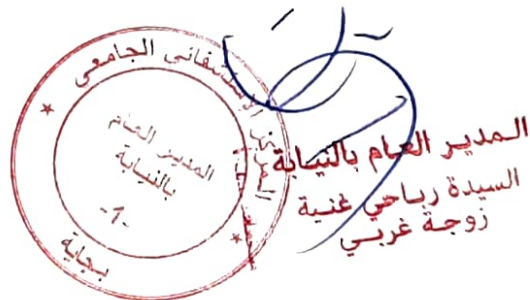 المركز الاستشفائي الجامعي
المدير العام
بالنيابة
-1-
بجاية
المدير العام بالنيابة
السيدة رباحي غنية
زوجة غربي